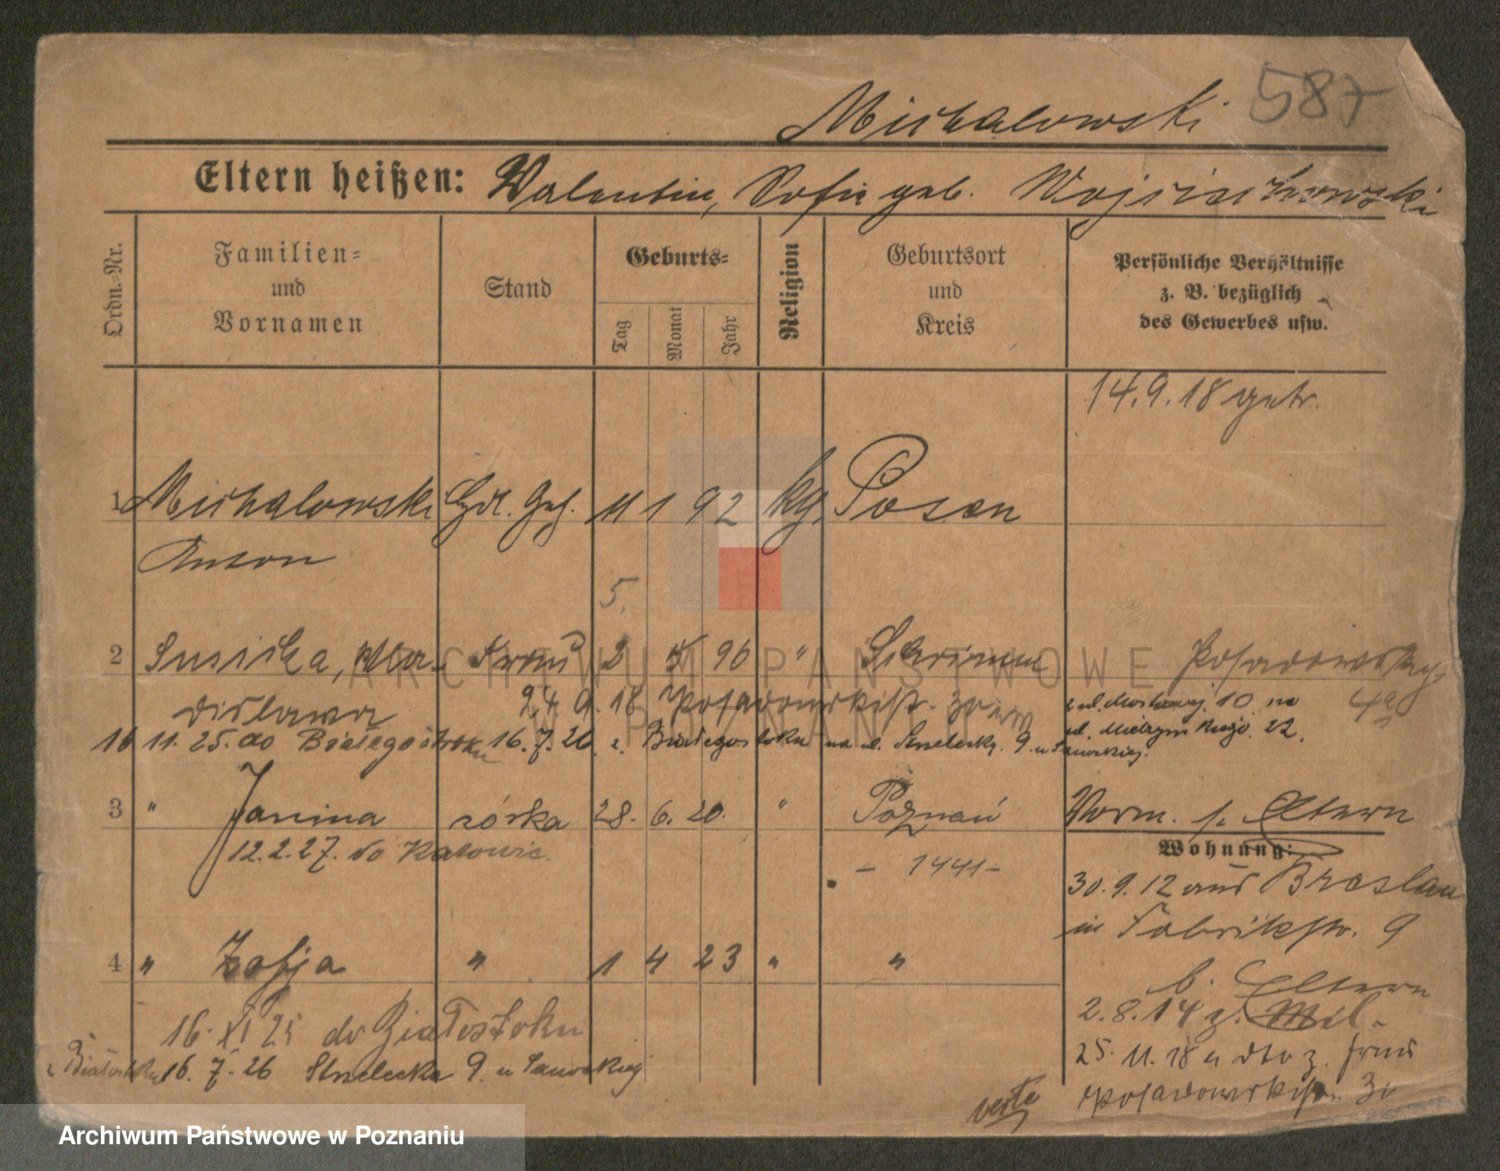 Michalowski 587
Eltern heißen: Valentin, Sofie geb. Wojciechowski
Ordn.-Nr.
Familien-
und
Vornamen
Stand
Geburts-
Tag
Monat
Jahr
Religion
Geburtsort
und
Kreis
Persönliche Verhältnisse
z. B. bezüglich
des Gewerbes usw.
14.9.18 getr.
1 Michalowski Hdl. Geh. 11 1 92 kg. Posen
Anton
5.
2 Susicka, Wla- Frau 2 96 " Schrimm Posadowsky
dislawa 24 9. 18 Posadowskistr. 10 na 4a
16 11. 25. do Białegostoku 16. 7. 26. z Białegostoku na ul. Strzelecką. 9. u 22.
3 " Janina córka 28. 6. 20. " Poznań Vorm. s. Eltern
12.2.27. do Katowic - 1441-
Wohnung:
30.9.12 aus Breslau
in Fabrikstr. 9
4 " Zofja " 1 4 23 " "
b. Eltern
2.8.14 z. Mil-
16. XI 25 do Białostoku
25. 11. 18 z. Frau
16. 7. 26 Strzelecka 9. u
Posadowskistr. 30
verte
ARCHIWUM PAŃSTWOWE
W POZNANIU
Archiwum Państwowe w Poznaniu